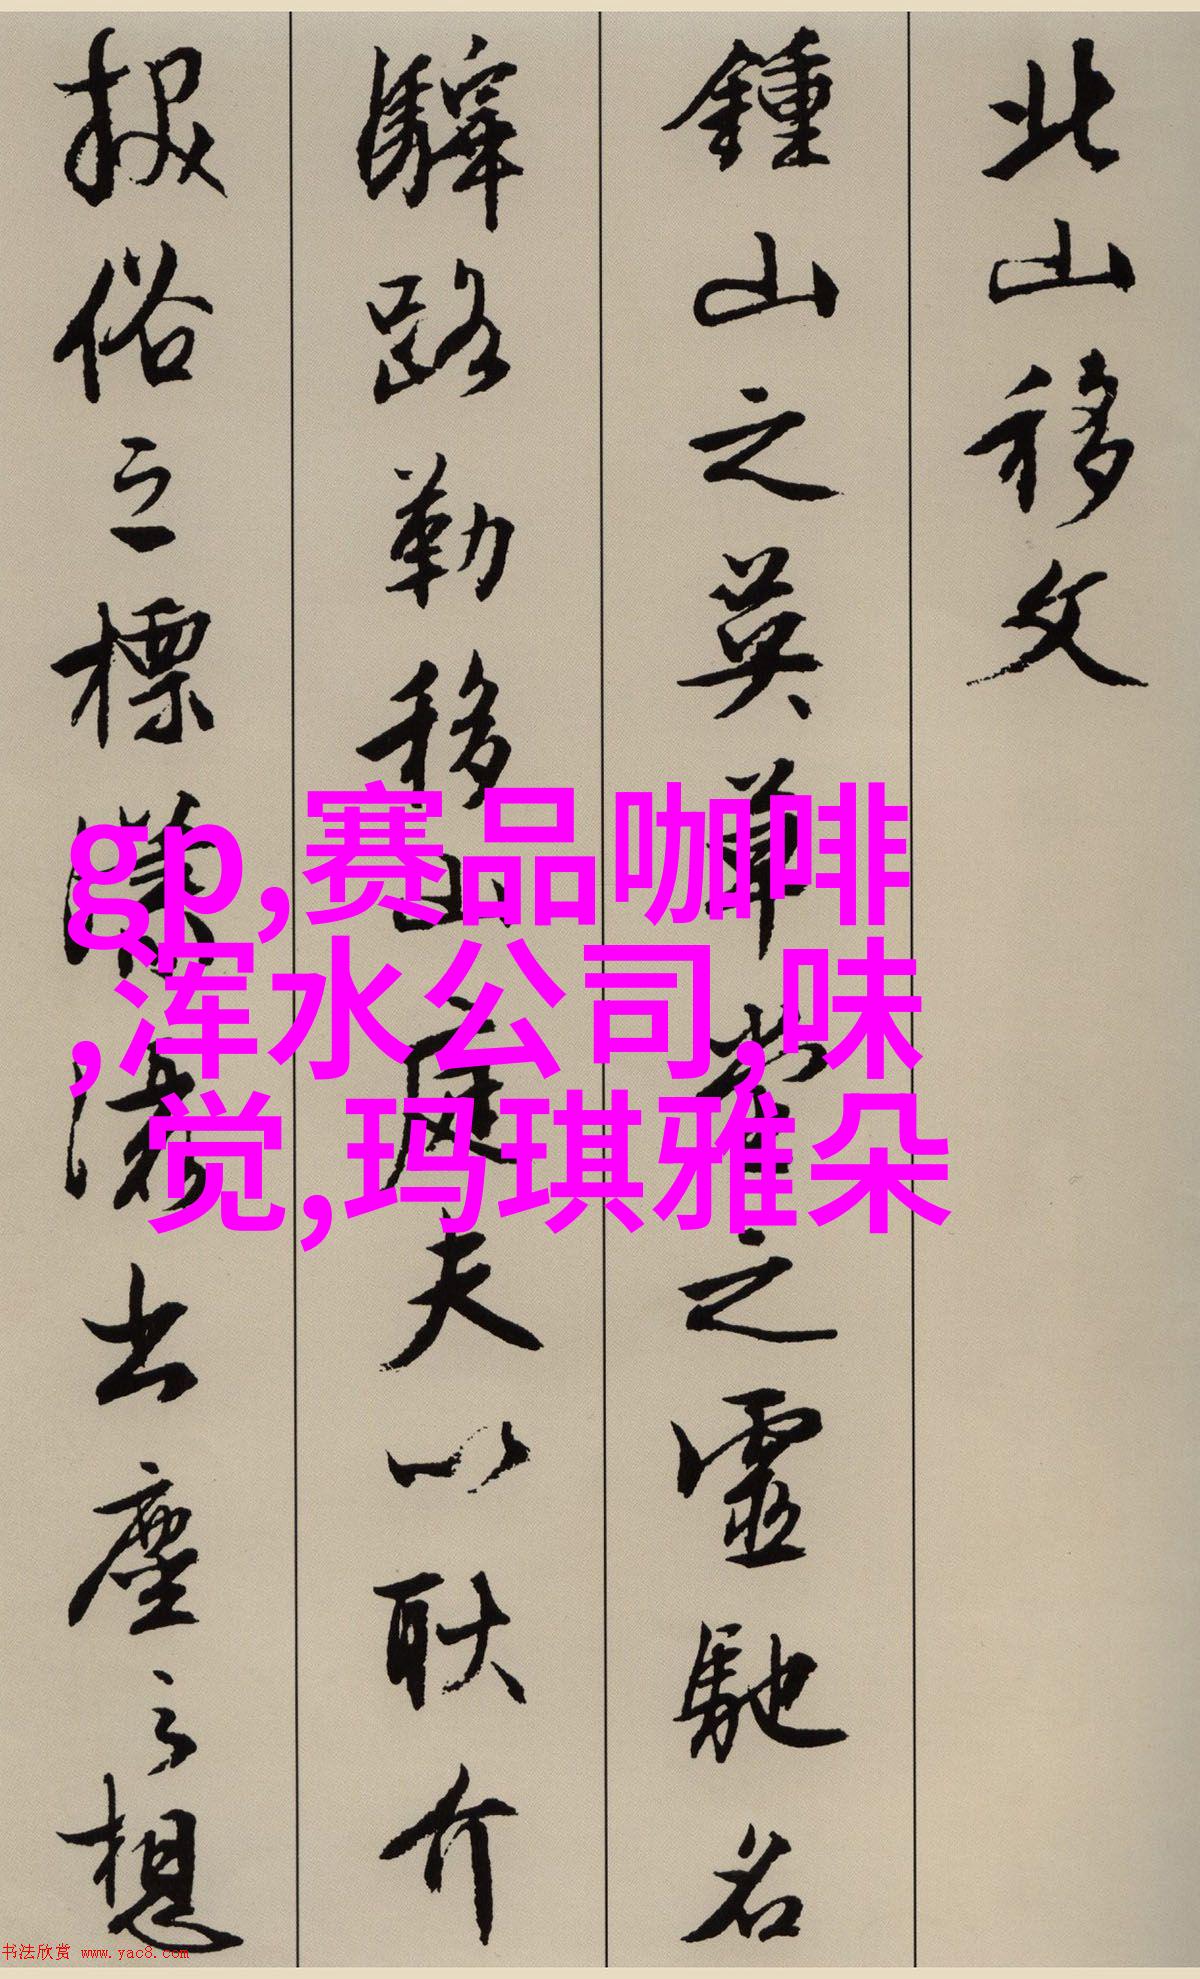 北山移文
鍾山之英草堂之靈馳名
驛路勒移山庭夫以耿介
拔俗之標瀟灑出塵之想
gp,赛品咖啡
,浑水公司,味
觉,玛琪雅朵
书法欣赏 www.yac8.com